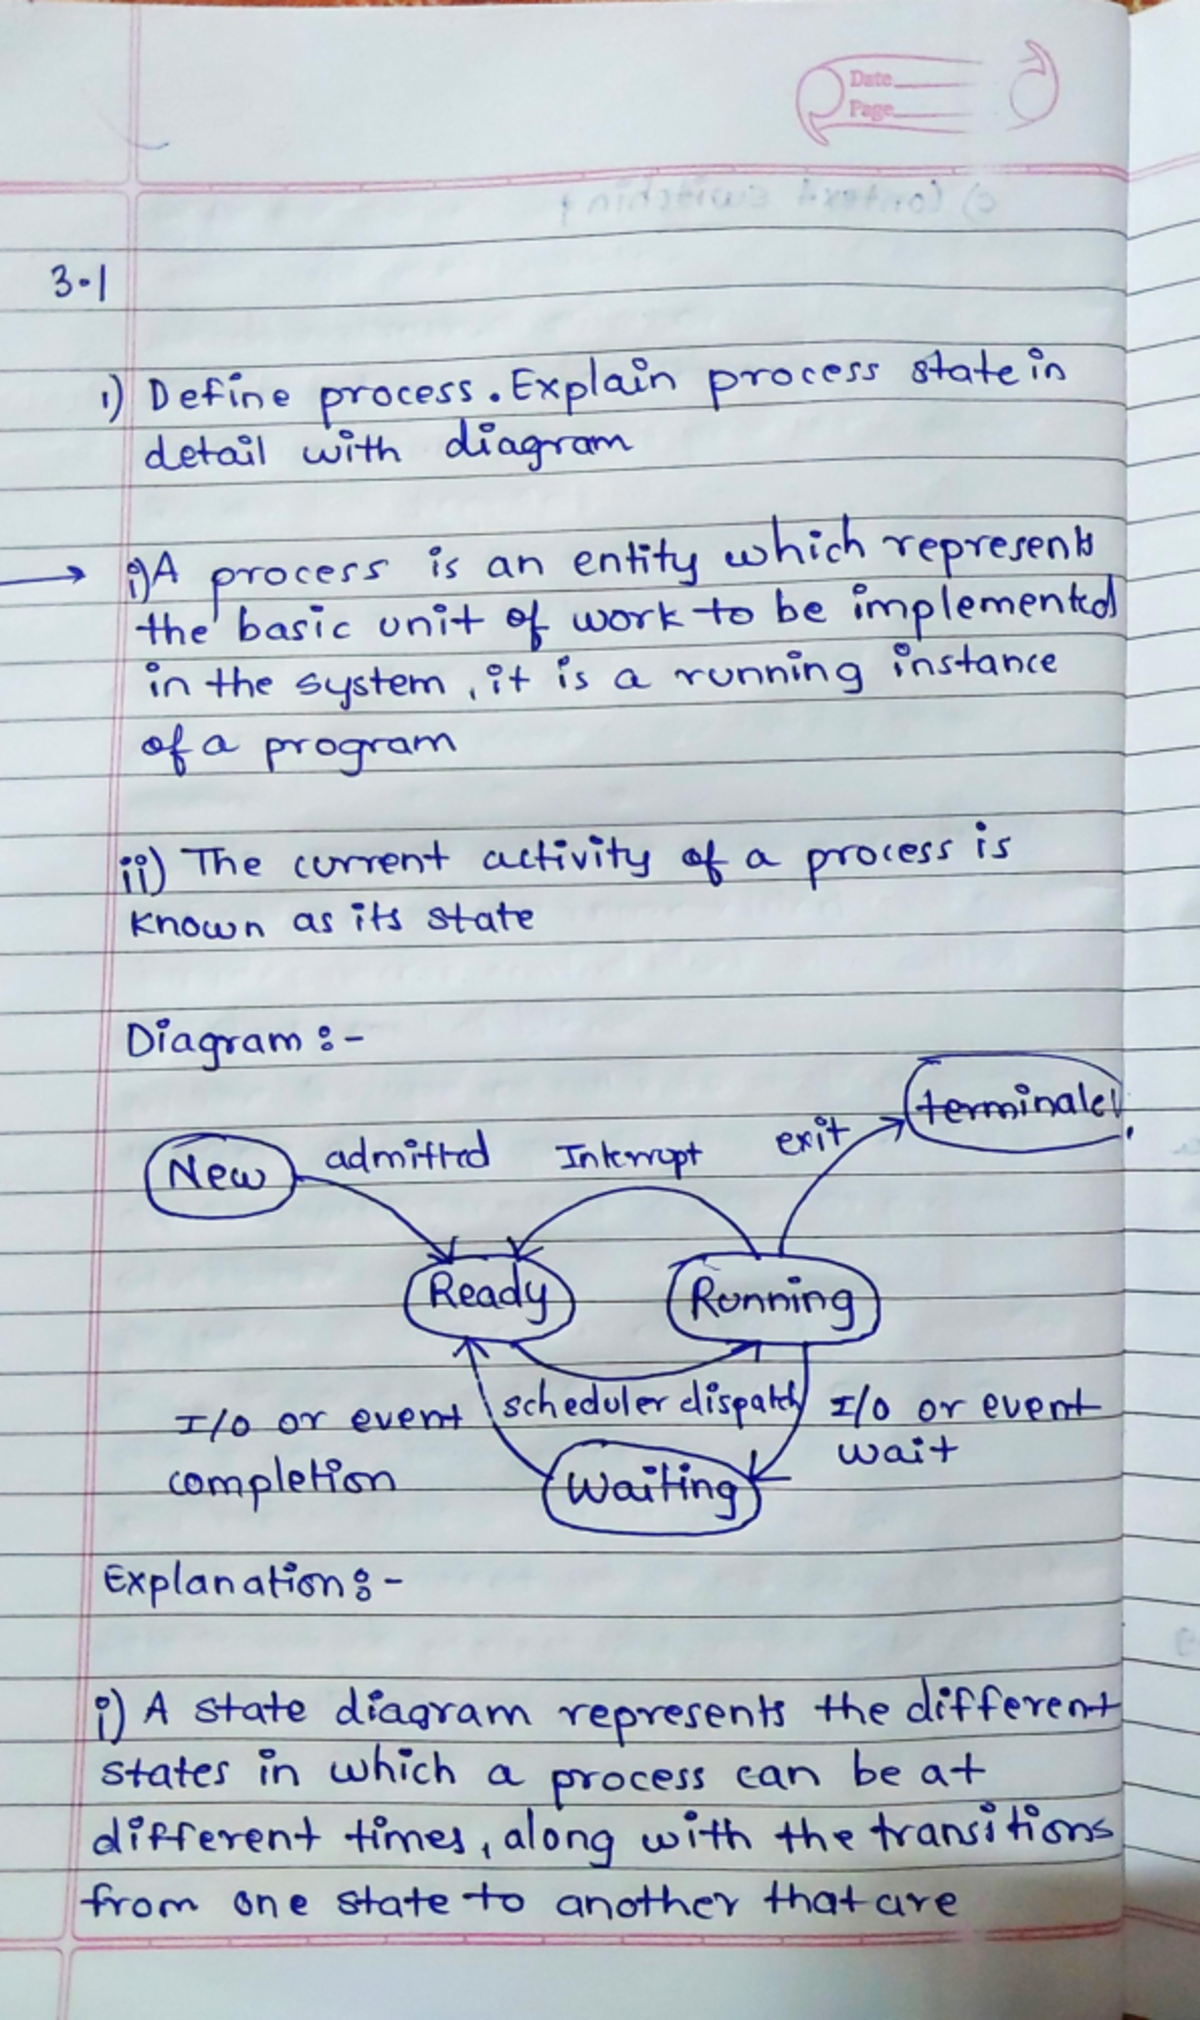 Date
Page
c) Context switching
3.1
1) Define process. Explain process state in
detail with diagram
→ i) A process is an entity which represents
the basic unit of work to be implemented
in the system, it is a running instance
of a program
ii) The current activity of a process is
known as its state
Diagram :-
terminated
New admitted Interrupt exit
Ready Running
scheduler dispatch
I/O or event
completion
I/O or event
wait
Waiting
Explanation :-
i) A state diagram represents the different
states in which a process can be at
different times, along with the transitions
from one state to another that are